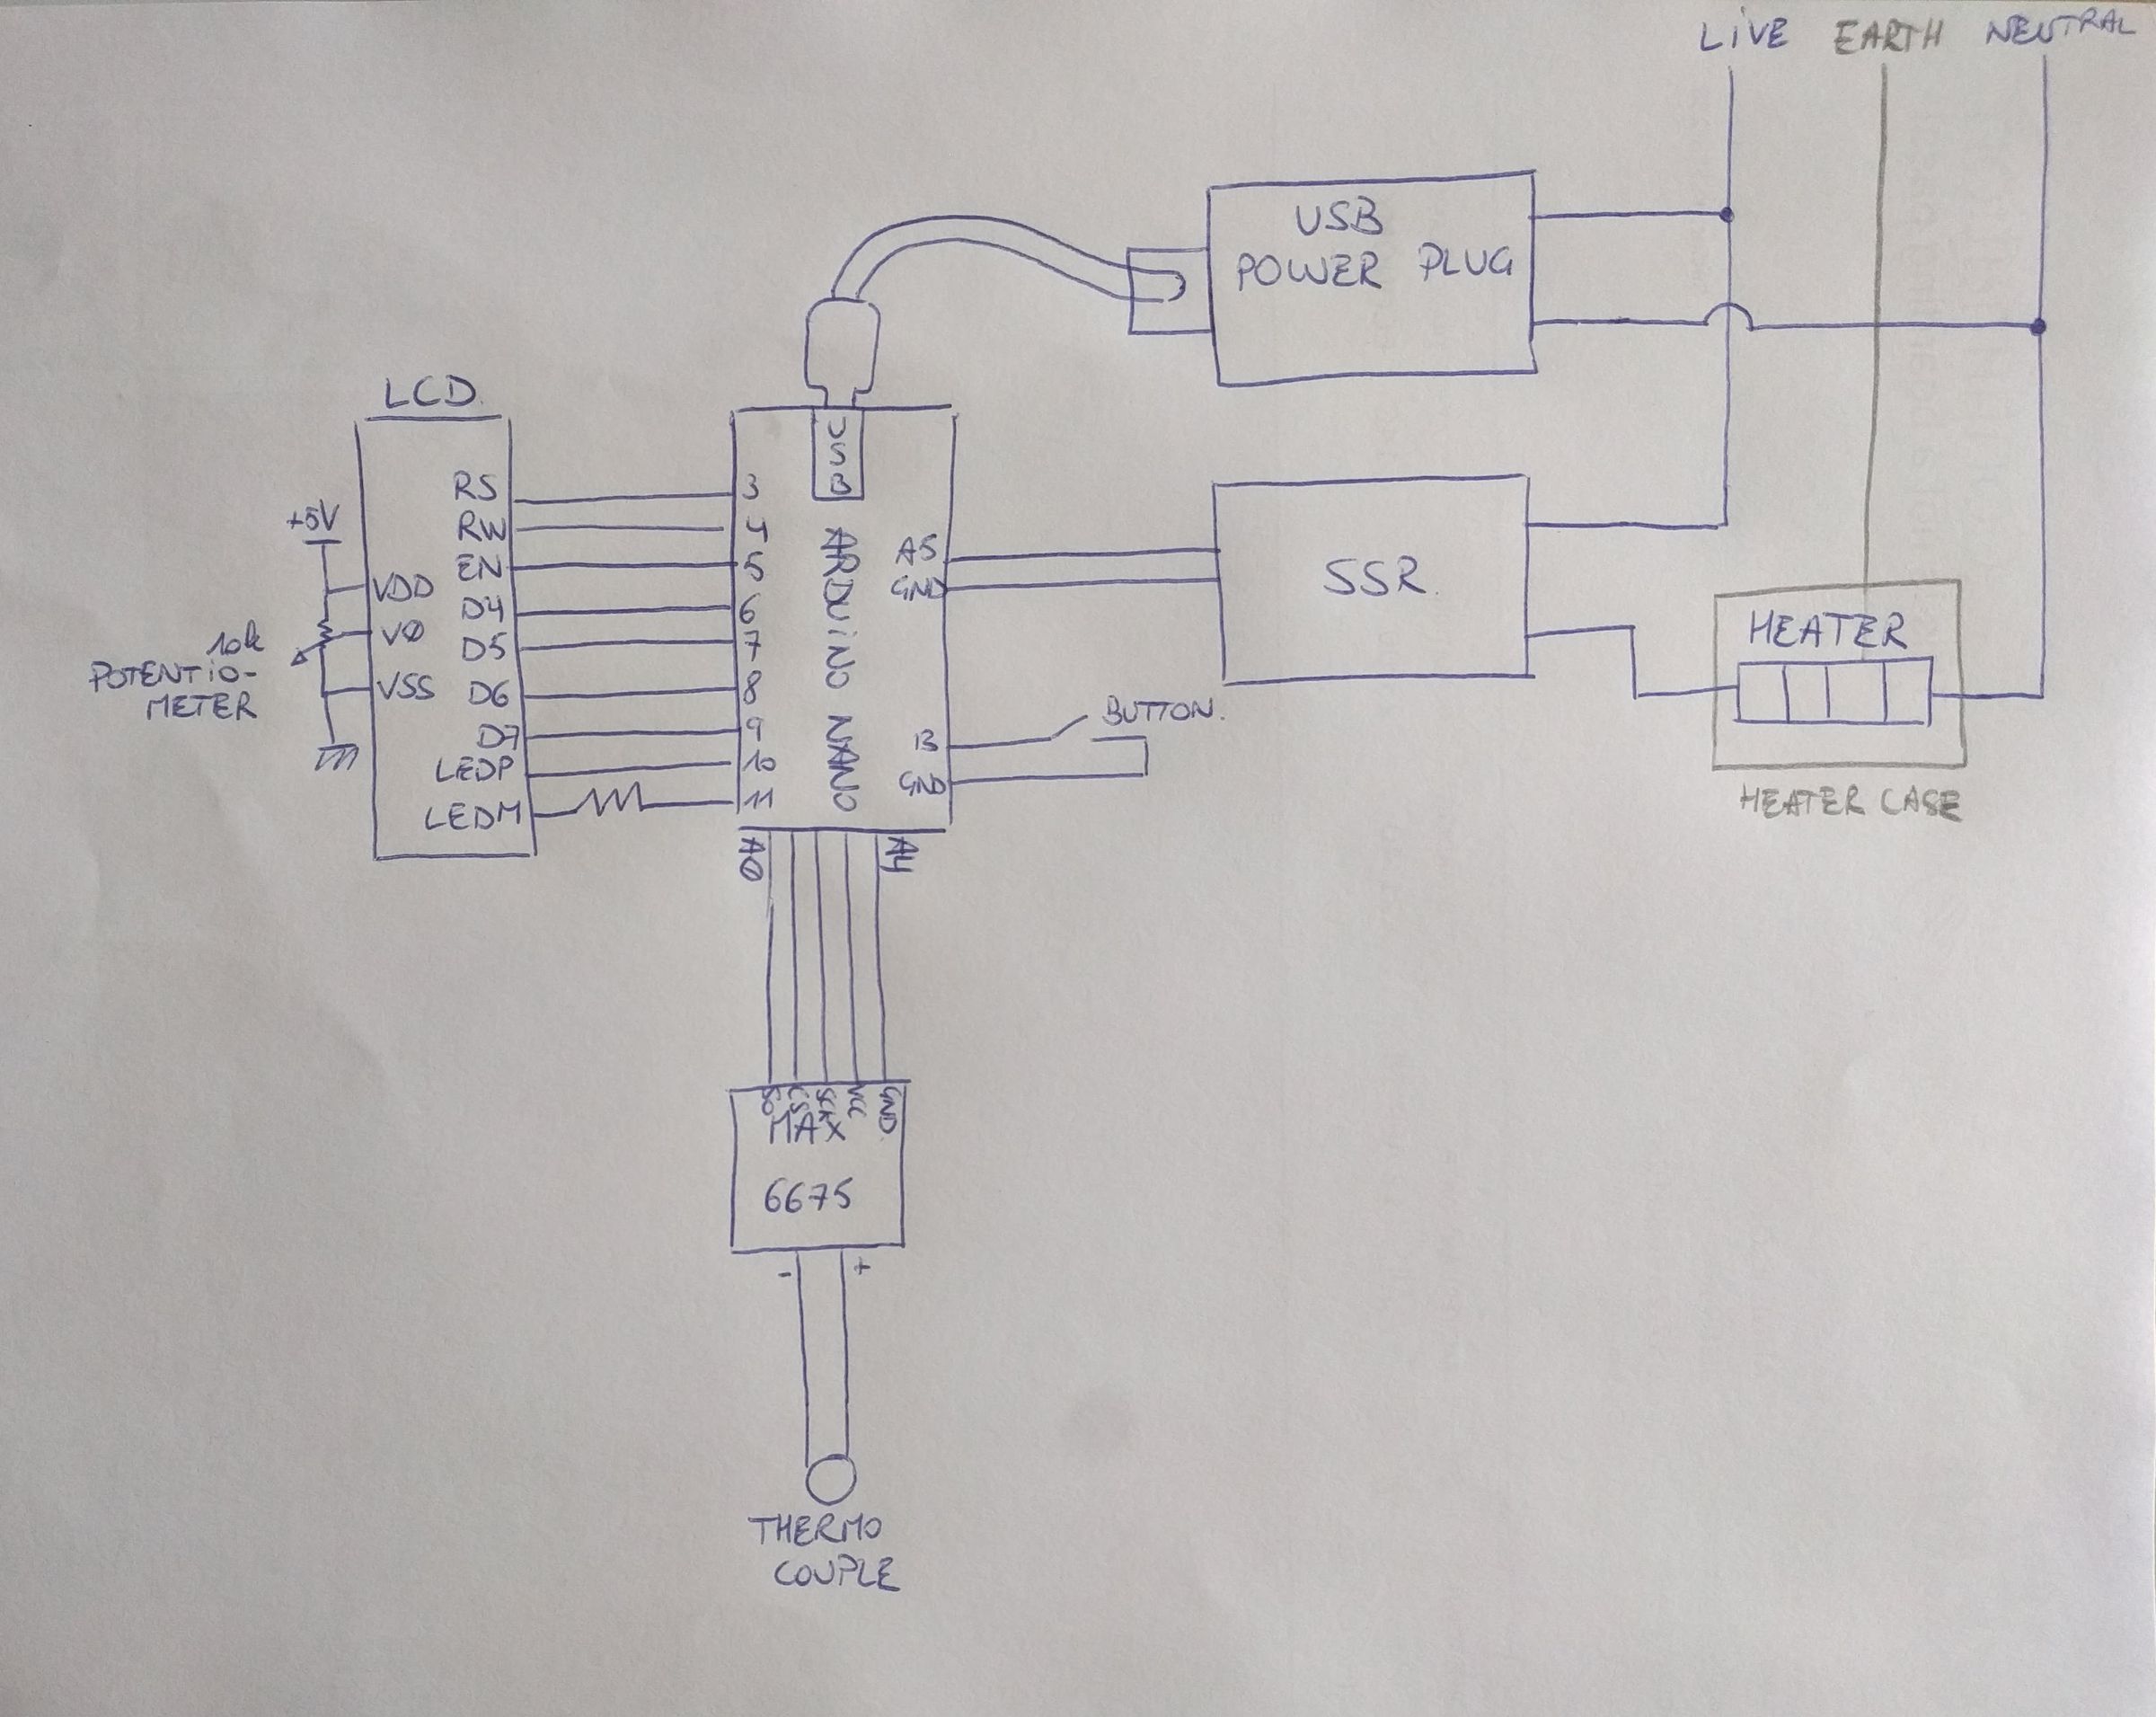 LIVE EARTH NEUTRAL
USB
POWER PLUG
LCD
USB
RS
RW
EN
D4
D5
D6
D7
LEDP
LEDM
+5V
VDD
VØ
VSS
10k
POTENTIO-
METER
3
4
5
6
7
8
9
10
11
ARDUiNO NANO
A5
GND
13
GND
BUTTON.
SSR.
HEATER
HEATER CASE
AØ
A4
SO
CS
SCK
VCC
GND
MAX
6675
- +
THERMO
COUPLE